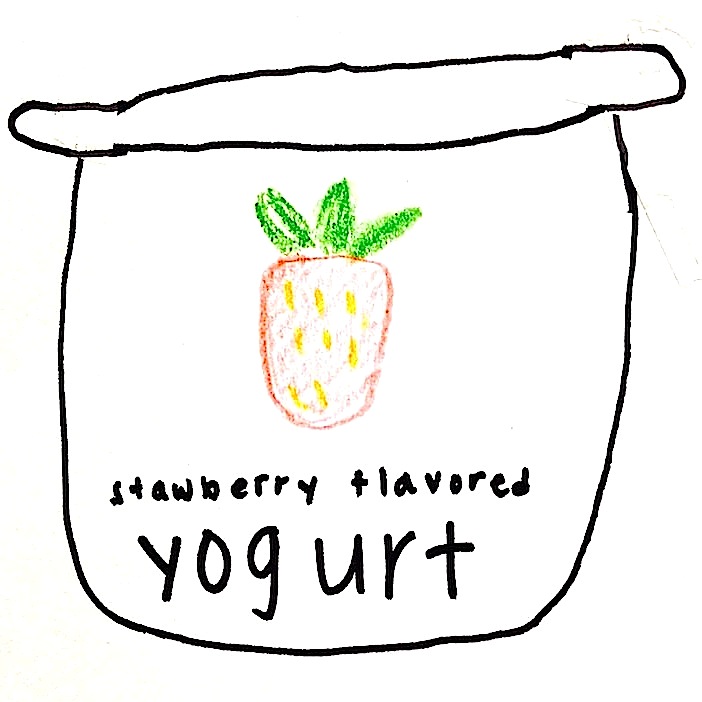 stawberry flavored
yogurt